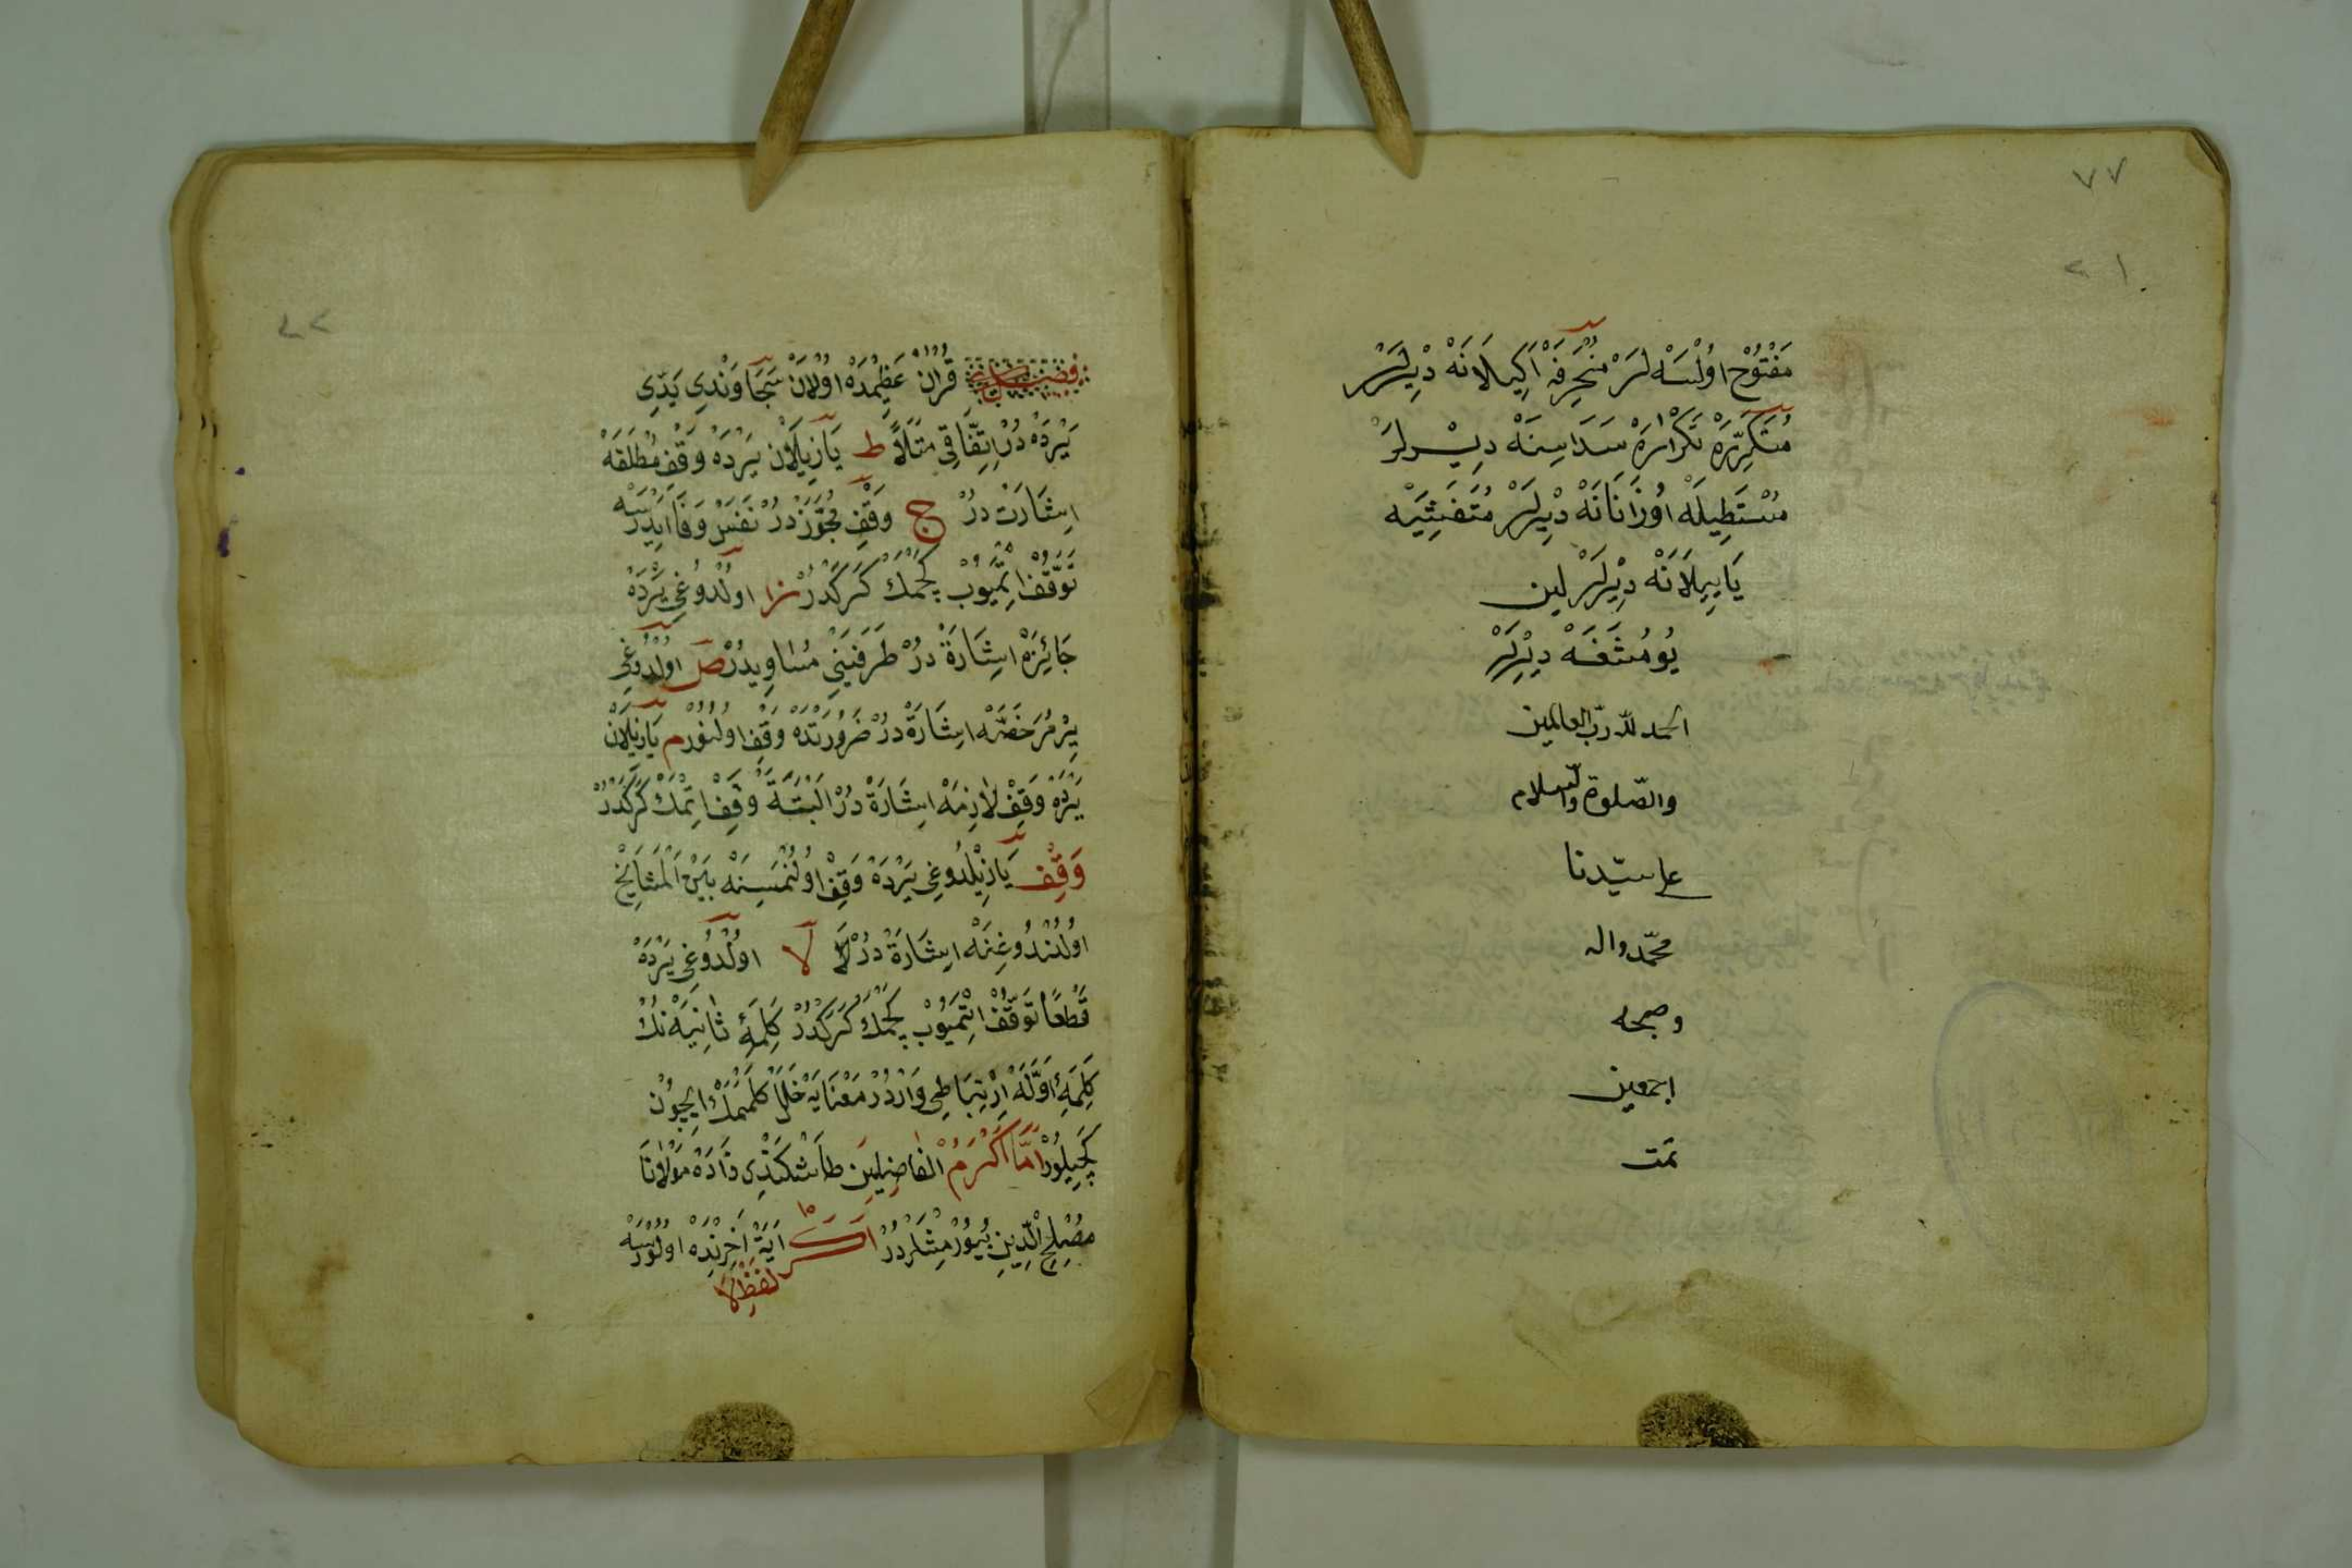 ٧٧
٢١
مَفْتُوْح اوُلْسَه لَرْ مُنْحَرِفَه اَكِيلَانَه دْيِرلَرْ
مُتَكَرِّرَه تَكْرَارَه سَدَاسِنَه دِيْرلَرْ
مُسْتَطِيلَه اُوزَانَانَه دْيِرلَرْ مُتَفَشِّيَه
يَايِيلَانَه دِيْرلَرْ لين
يُومُشَغَه دِيْرلَرْ
الحمد لله ربّ العالمين
والصّلوة والسّلام
على سيّدنا
محمّد واله
وصحبه
اجمعين
تمت
قُرْانِ عَظِيمْدَه اوُلَانْ سَجَاوَنْدِى يَدِّى
يَرْدَه دُرْ اِتِّفَاقِى مَثَلًا ط يَازِيلَانْ يَرْدَه وَقْفِ مُطْلَقَه
اِشَارَتْ دُرْ ج وَقْفِ مُجَوَّزْ دُرْ نَفَسْ وَفَا ايدَرْسَه
تَوَقُّفْ اِتْمَيُوبْ كَچْمَكْ كَرَكْدُرْ ز اوُلْدُوغِى يَرْدَه
جَائِزَه اِشَارَةْ دُرْ طَرَفَيْنِى مُسَاوِيدُرْ ص اوُلْدُوغِى
يِرْ مُرَخَّصَه اِشَارَةْ دُرْ ضَرُورَتْدَه وَقْفْ اوُلُنُورْ م يَازِيلَانْ
يَرْدَه وَقْفِ لَازِمَه اِشَارَةْ دُرْ اَلْبَتَّه وَقْفْ اِتْمَكْ كَرَكْدُرْ
وَقْف يَازِيلْدُوغِى يَرْدَه وَقْفْ اوُلُنْمَسِنَه بَيْنَ الْمَشَايِخْ
اوُلُنْدُوغِنَه اِشَارَةْ دُرْ لَا لا اوُلْدُوغِى يَرْدَه
قَطْعًا تَوَقُّفْ اِتْمَيُوبْ كَچْمَكْ كَرَكْدُرْ كَلِمَۀِ ثَانِيَه نُكْ
كَلِمَۀِ اَوَّلَه اِرْتِبَاطِى وَارْدُرْ مَعْنَايَه خَلَلْ كَلْمَمَكْ اِيچُونْ
كَچِيلُورْ اَمَّا اَكْرَمُ الفَاضِلِين طَاشْكَنْدِى زَادَه مَوْلَانَا
مُصْلِحِ الدِّينْ بُيُورْمِشْلَرْدُرْ اكر اٰيَة اٰخِرِنْدَه اوُلُورْسَه
لَفْظِ لَا